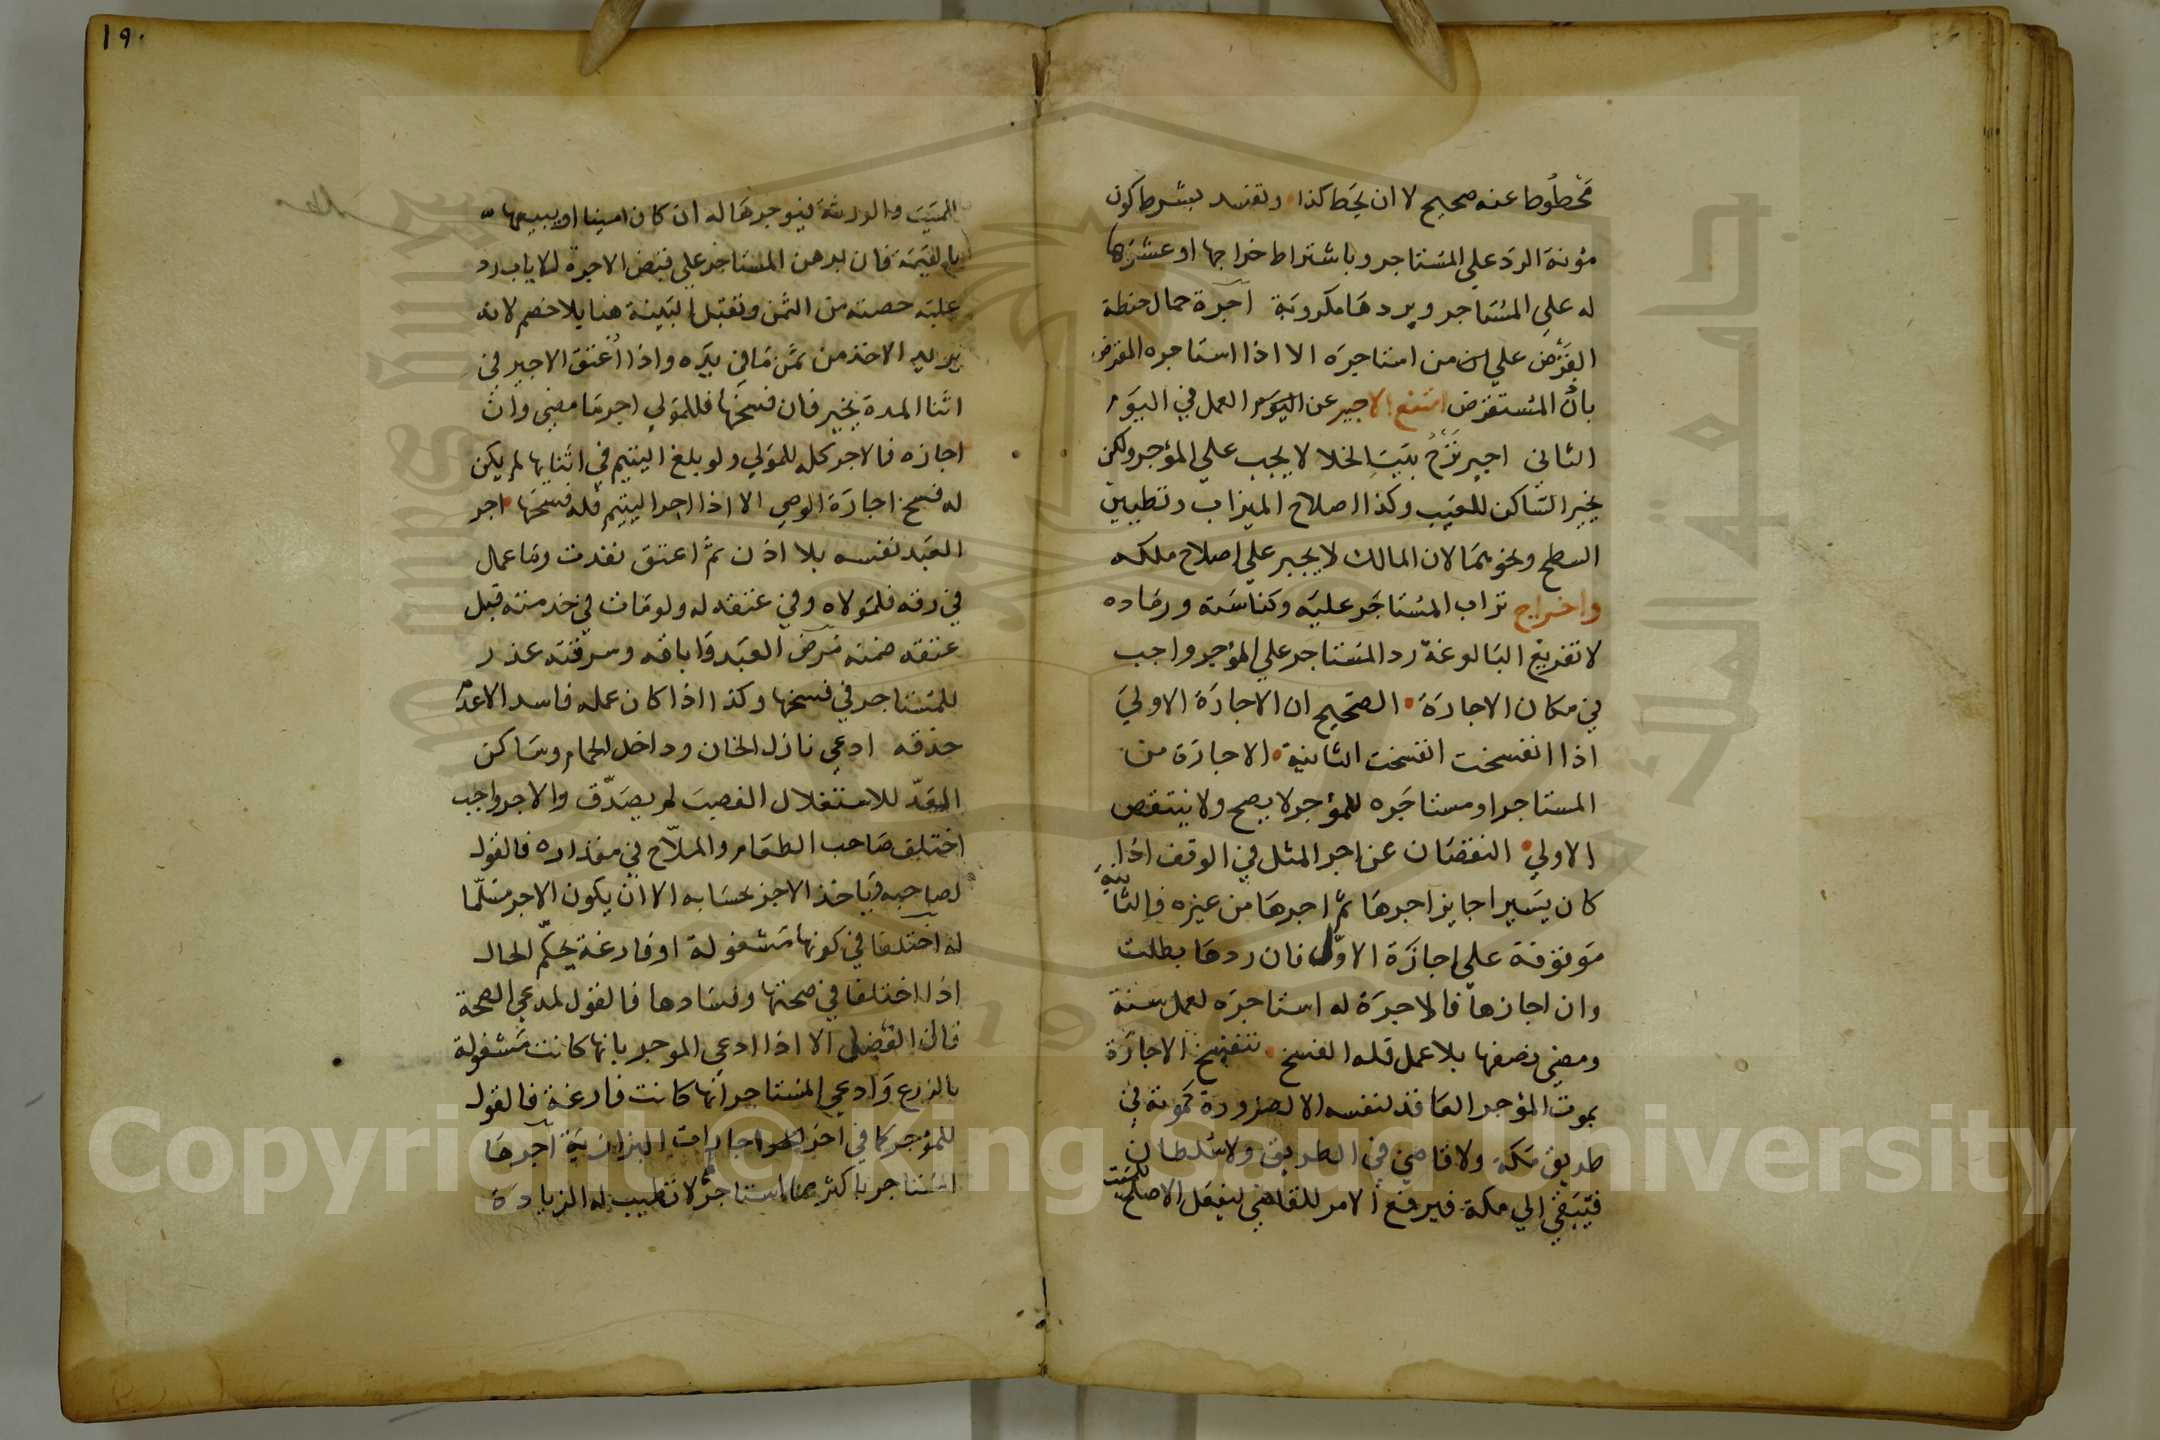 مَحْطُوطا عنه صحيح لا ان يحَط كذا وتفسد بشرط كون
مؤنة الرد علي المستاجر وباشتراط خراجها او عشرها
له علي المستاجر وبردها مكروبة اجرة حمال حنطة
القرض علي من استاجره الا اذا استاجره المقرض
باذن المستقرض امتنع الاجير عن العمل في اليوم
الثاني اجير نزح بيت الخلا لا يجب علي المؤجر ولكن
يخير الساكن للعيب وكذا اصلاح الميزاب وتطيين
السطح ونحوهما لان المالك لا يجبر علي اصلاح ملكه
واخراج تراب المستاجر عليه وكناسته ورماده
لا تفريغ البالوعة رد المستاجر علي المؤجر واجب
في مكان الاجارة الصحيح ان الاجارة الاولي
اذا انفسخت انفسخت الثانية الاجارة من
المستاجر او مستاجره للمؤجر لا يصح ولا ينتقض
الاولي النقصان عن اجر المثل في الوقف اذا
كان يسيرا جايز اجرها ثم اجرها من غيره فالثانية
موقوفة علي اجازة الاول فان ردها بطلت
وان اجازها فالاجرة له استاجره لعمل سنة
ومضي نصفها بلا عمل فله الفسخ تنفسخ الاجارة
بموت المؤجر العاقد لنفسه الا لضرورة كموته في
طريق مكة ولا قاضي في الطريق ولا سلطان
فتبقي الي مكة فيرفع الامر للقاضي ليفعل الاصلح للميت
١٩٠
للميت والورثة فيؤجرها له ان كان امينا او يبيعها
بالقيمة فان برهن المستاجر علي قبض الاجرة للاياب رد
عليه حصته من الثمن وتقبل البينة هنا بلا خصم لانه
يريد الاخذ من ثمن ما في يده واذا اعتق الاجير في
اثنا المدة يخير فان فسخها فللمولي اجر ما مضي وان
اجازه فالاجر كله للمولي ولو بلغ اليتيم في اثنايها لم يكن
له فسخ اجارة الوصي الا اذا اجر اليتيم فله فسخها اجر
العبد نفسه بلا اذن ثم اعتق نفذت وما عمل
في رقه فلمولاه وفي عتقه له ولو مات في خدمته قبل
عتقه ضمنه مرض العبد واباقه وسرقته عذر
للمستاجر في فسخها وكذا اذا كان عمله فاسد الا عدم
حذقه ادعي نازل الخان وداخل الحمام وساكن
المعدّ للاستغلال الغصب لم يصدّق والاجر واجب
اختلف صاحب الطعام والملاّح في مقداره فالقول
لصاحبه وياخذ الاجر بحسابه الا ان يكون الاجر مسلّما
له اختلفا في كونها مشغولة او فارغة يحكّم الحال
اذا اختلفا في صحتها وفسادها فالقول لمدعي الصحة
قال الفضلي الا اذا ادعي الموجر بانها كانت مشغولة
بالزرع وادعي المستاجر انها كانت فارغة فالقول
للمؤجر كما في اخر اجارات البزازية اجرها
المستاجر باكثر مما استاجر لا تطيب له الزيادة
Copyright © King Saud University
جامعة الملك سعود
1957